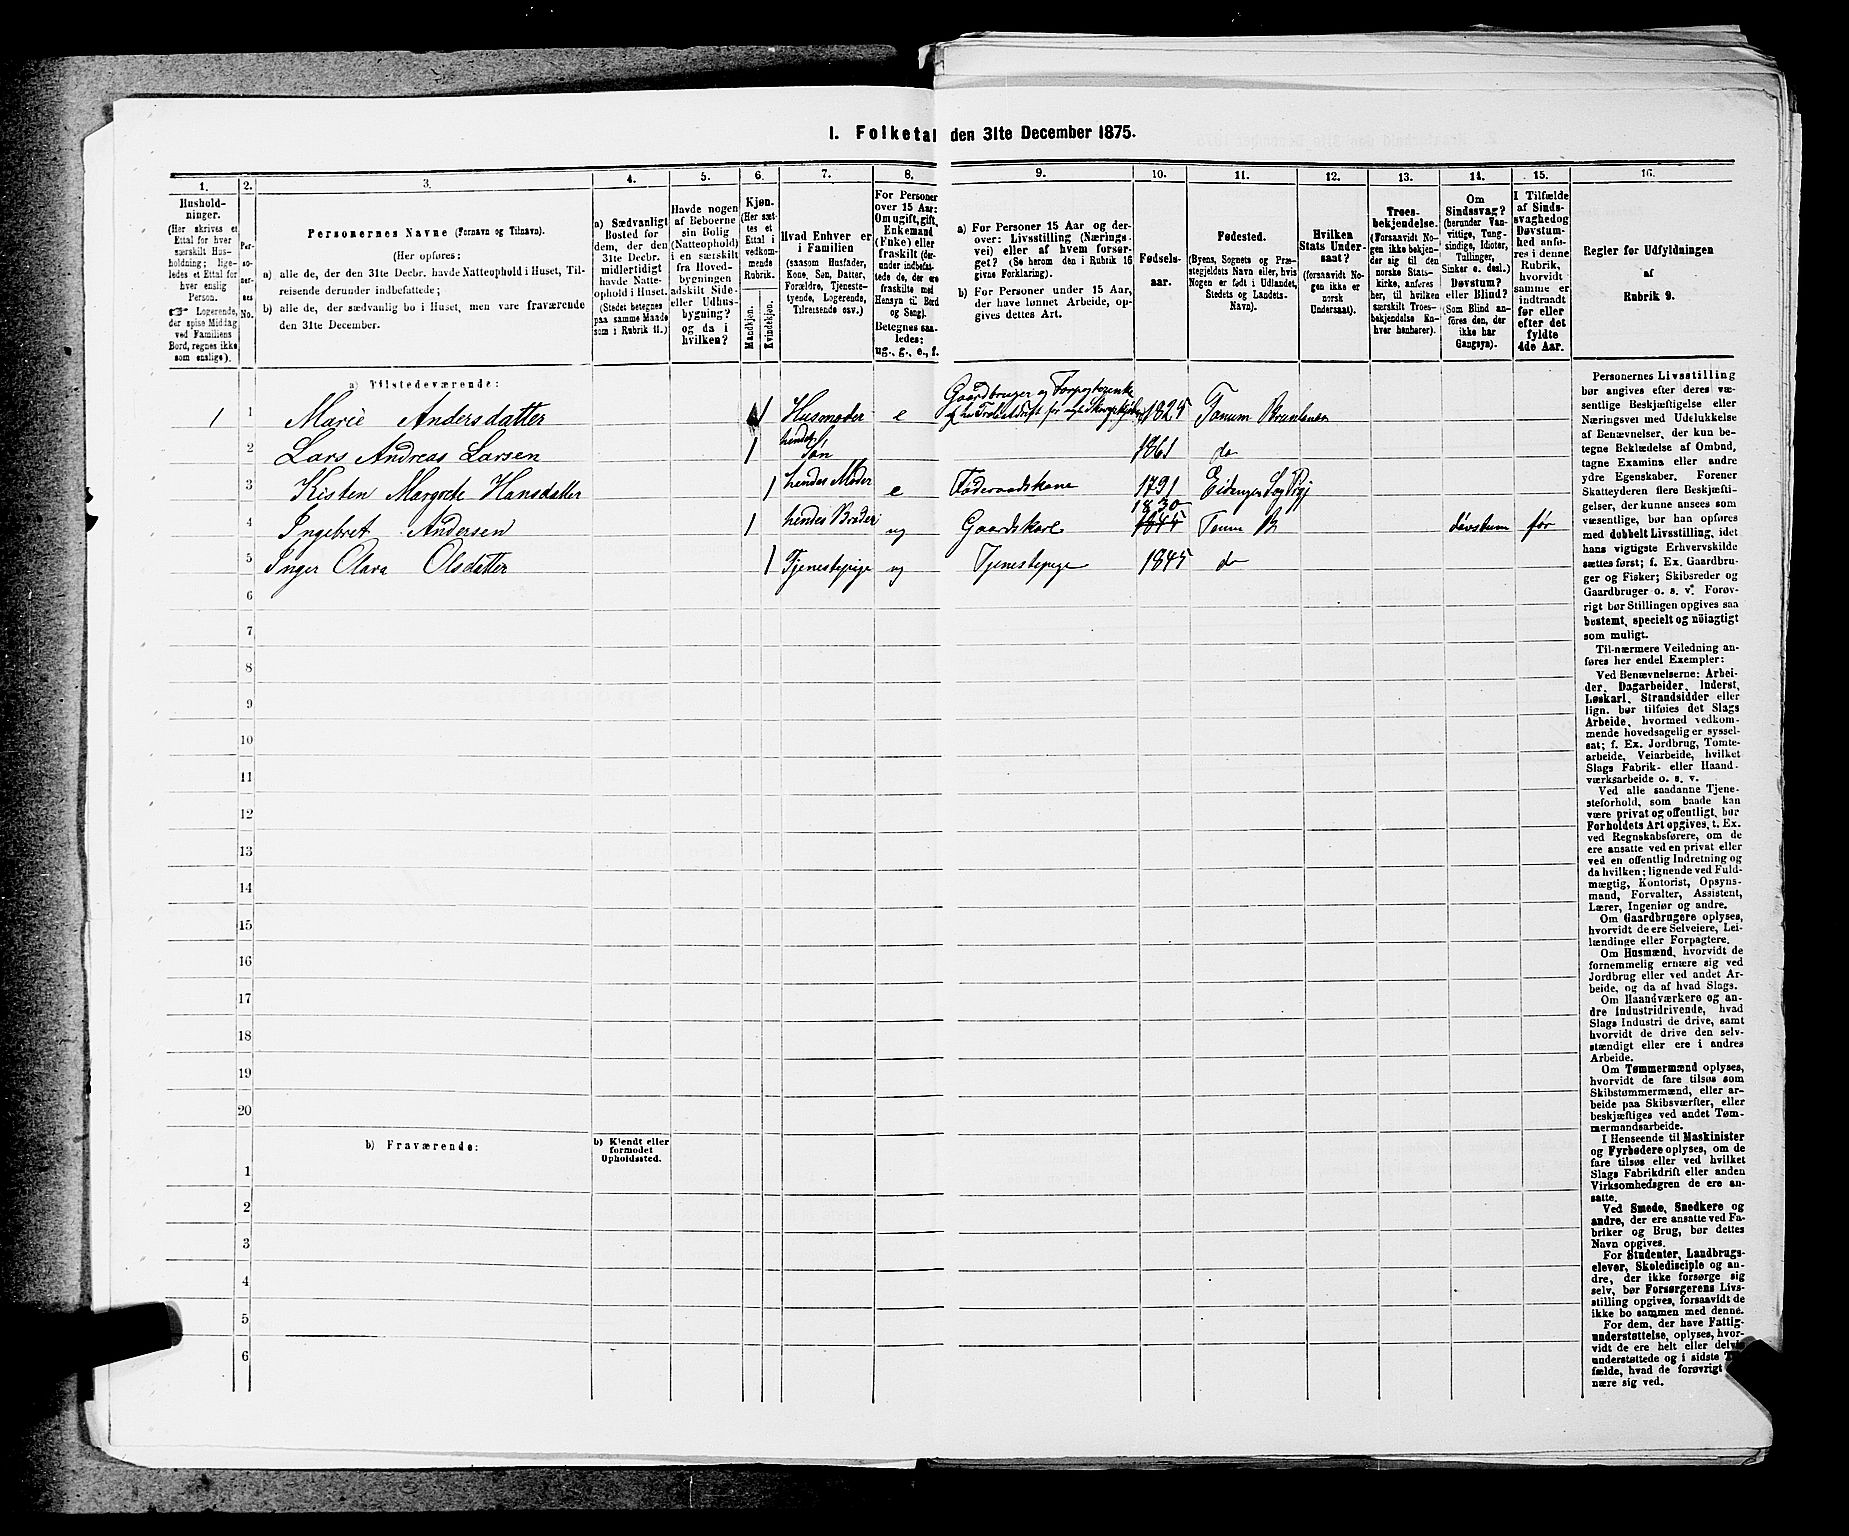 I. Folketal den 31te December 1875.
1. 2. 3. 4. 5. 6. 7. 8. 9. 10. 11. 12. 13. 14. 15. 16.
Hushold-
ninger.
(Her skrives et
Ettal for hver
særskilt Hus-
holdning; lige-
ledes et Ettal for
hver enslig
Person.
☞ Logerende,
der spise Middag
ved Familiens
Bord, regnes ikke
som enslige).
Per-
so-
ner-
nes
No.
Personernes Navne (Fornavn og Tilnavn).
(Her opføres:
a) alle de, der den 31te Decbr. havde Natteophold i Huset, Til-
reisende derunder indbefattede;
b) alle de, der sædvanlig bo i Huset, men vare fraværende
den 31te December.
a) Sædvanligt
Bosted for
dem, der den
31te Decbr.
midlertidigt
havde Natte-
ophold i Huset.
(Stedet betegnes
paa samme Maade
som i Rubrik 11.)
Havde nogen
af Beboerne
sin Bolig
(Natteophold)
i en særskilt
fra Hoved-
bygningen
adskilt Side-
eller Udhus-
bygning?
og da i
hvilken?
Kjøn.
(Her sæt-
tes et
Ettal i
vedkom-
mende
Rubrik.
Mandkjøn.
Kvindekjøn.
Hvad Enhver er
i Familien
(saasom Husfader,
Kone, Søn, Datter,
Forældre, Tjeneste-
tyende, Logerende,
Tilreisende osv.)
For Personer
over 15 Aar:
Om ugift, gift,
Enkemand
(Enke) eller
fraskilt (der-
under indbefat-
tede de, der ere
fraskilte med
Hensyn til Bord
og Seng).
Betegnes saa-
ledes:
ug., g., e., f.
a) For Personer 15 Aar og der-
over: Livsstilling (Nærings-
vei) eller af hvem forsør-
get? (Se herom den i Rubrik 16
givne Forklaring).
b) For Personer under 15 Aar,
der have lønnet Arbeide, op-
gives dettes Art.
Fødsels-
aar.
Fødested.
(Byens, Sognets og Præ-
stegjeldets Navn eller, hvis
Nogen er født i Udlandet,
Stedets og Landets
Navn).
Hvilken
Stats Under-
saat?
(forsaavidt No-
gen ikke er
norsk
Undersaat).
Troes-
bekjendelse.
(Forsaavidt No-
gen ikke bekjen-
der sig til den
norske Stats-
kirke, anføres
her, til hvilken
særskilt Troes-
bekjendelse En-
hver henhører).
Om
Sindssvag?
(herunder Van-
vittige, Tung-
sindige, Idioter,
Tullinger,
Sinker o. desl.)
Døvstum?
eller Blind?
(Som Blind an-
føres den, der
ikke har
Gangsyn).
I Tilfælde
af Sinds-
svaghed og
Døvstum-
hed anfø-
res i denne
Rubrik,
hvorvidt
samme er
indtraadt
før eller
efter det
fyldte
4de Aar.
Regler for Udfyldningen
af
Rubrik 9.
a) Tilstedeværende:
1 1 Marie Andersdatter 1 Husmoder e Gaardbruger og 1825 Tanum Brunlanes
2 Lars Andreas Larsen 1 hendes Søn 1861 do
3 Kisten Margrete Hansdatter 1 hendes Moder e Føderaadskone 1791
4 Ingebret Andersen 1 hendes Broder ug Gaardskarl 1830 1845 Tanum B døvstum før
5 Inger Olava Olsdatter 1 Tjenestepige ug Tjenestepige 1845 do
6
7
8
9
10
11
12
13
14
15
16
17
18
19
20
b) Fraværende:
b) Kjendt eller
formodet
Opholdssted.
1
2
3
4
5
6
Personernes Livsstilling
bør angives efter deres væ-
sentlige Beskjæftigelse eller
Næringsvei med Udelukkelse
af Benævnelser, der kun be-
tegne Beklædelse af Ombud,
tagne Examina eller andre
ydre Egenskaber. Forener
Skatteyderen flere Beskjæfti-
gelser, der kunne ansees som
væsentlige, bør han opføres
med dobbelt Livsstilling, idet
hans vigtigste Erhvervskilde
sættes først; f. Ex. Gaardbru-
ger og Fisker; Skibsreder og
Gaardbruger o. s. v. Forøv-
rigt bør Stillingen opgives saa
bestemt, specielt og nöiagtigt
som muligt.
Til nærmere Veiledning an-
føres her endel Exempler:
Ved Benævnelserne: Arbei-
der, Dagarbeider, Inderst,
Løskarl, Strandsidder eller
lign. bør tilføies det Slags
Arbeide, hvormed vedkom-
mende hovedsagelig er syssel-
sat; f. Ex. Jordbrug, Tomte-
arbeide, Veiarbeide, hvilket
Slags Fabrik- eller Haand-
værksarbeide o. s. v.
Ved alle saadanne Tjene-
steforhold, som baade kan
være privat og offentligt, bør
Forholdets Art opgives, t. Ex.
ved Regnskabsførere, om de
ere ansatte ved en privat eller
ved en offentlig Indretning og
da hvilken; lignende ved Fuld-
mægtig, Kontorist, Opsyns-
mand, Forvalter, Assistent,
Lærer, Ingeniør og andre.
Om Gaardbrugere oplyses,
hvorvidt de ere Selveiere, Lei-
lændinge eller Forpagtere.
Om Husmænd, hvorvidt de
fornemmelig ernære sig ved
Jordbrug eller ved andet Ar-
beide, og da af hvad Slags.
Om Haandværkere og an-
dre Industridrivende, hvad
Slags Industri de drive, samt
hvorvidt de drive den selv-
stændigt eller ere i andres
Arbeide.
Om Tømmermænd oplyses,
hvorvidt de fare tilsøs som
Skibstømmermænd, eller ar-
beide paa Skibsværfter, eller
beskjæftiges ved andet Tøm-
mermandsarbeide.
I Henseende til Maskinister
og Fyrbødere oplyses, om de
fare tilsøs eller ved hvilket
Slags Fabrikdrift eller anden
Virksomhedsgren de ere an-
satte.
Ved Smede, Snedkere og
andre, der ere ansatte ved Fa-
briker og Brug, bør dettes
Navn opgives.
For Studenter, Landbrugs-
elever, Skoledisciple og an-
dre, der ikke forsørge sig
selv, bør Forsørgerens Livs-
stilling opgives, forsaavidt de
ikke bo sammen med denne.
For dem, der have Fattig-
understøttelse, oplyses, hvor-
vidt de ere helt eller delvis
understøttede og i sidste
fælde, hvad de forøvrigt
nære sig ved.